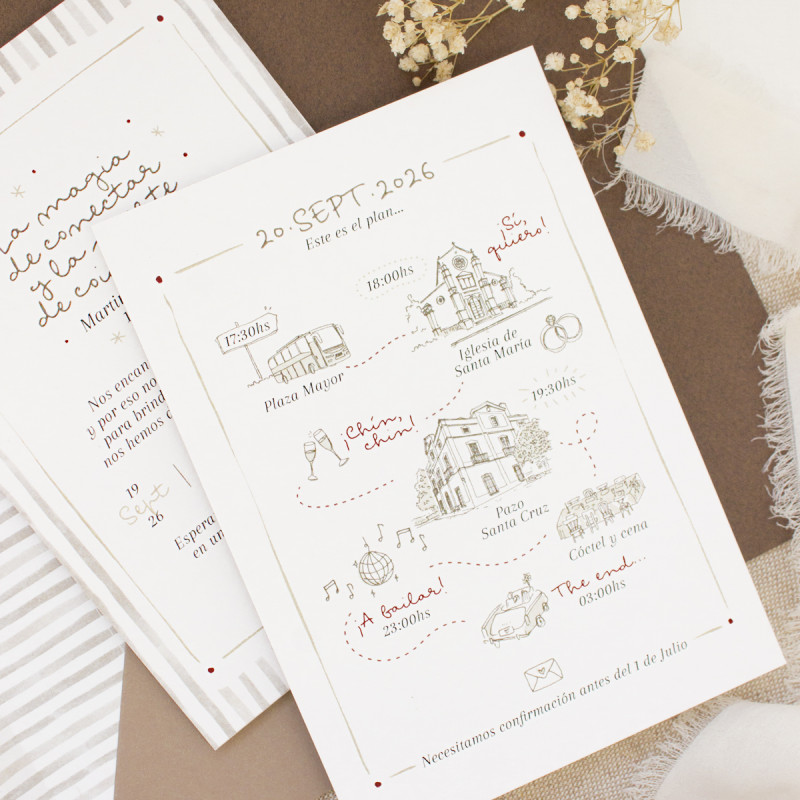 La magia
de conectar
y la
de
Martin
Nos encan
y por eso no
para brind
nos hemos
19
Sept
26
Espera
en un
20·SEPT·2026
Este es el plan...
¡Sí,
quiero!
18:00hs
17:30hs
Iglesia de
Santa María
Plaza Mayor
19:30hs
¡Chín,
chin!
Pazo
Santa Cruz
Cóctel y cena
¡A bailar!
23:00hs
The end...
03:00hs
Necesitamos confirmación antes del 1 de Julio